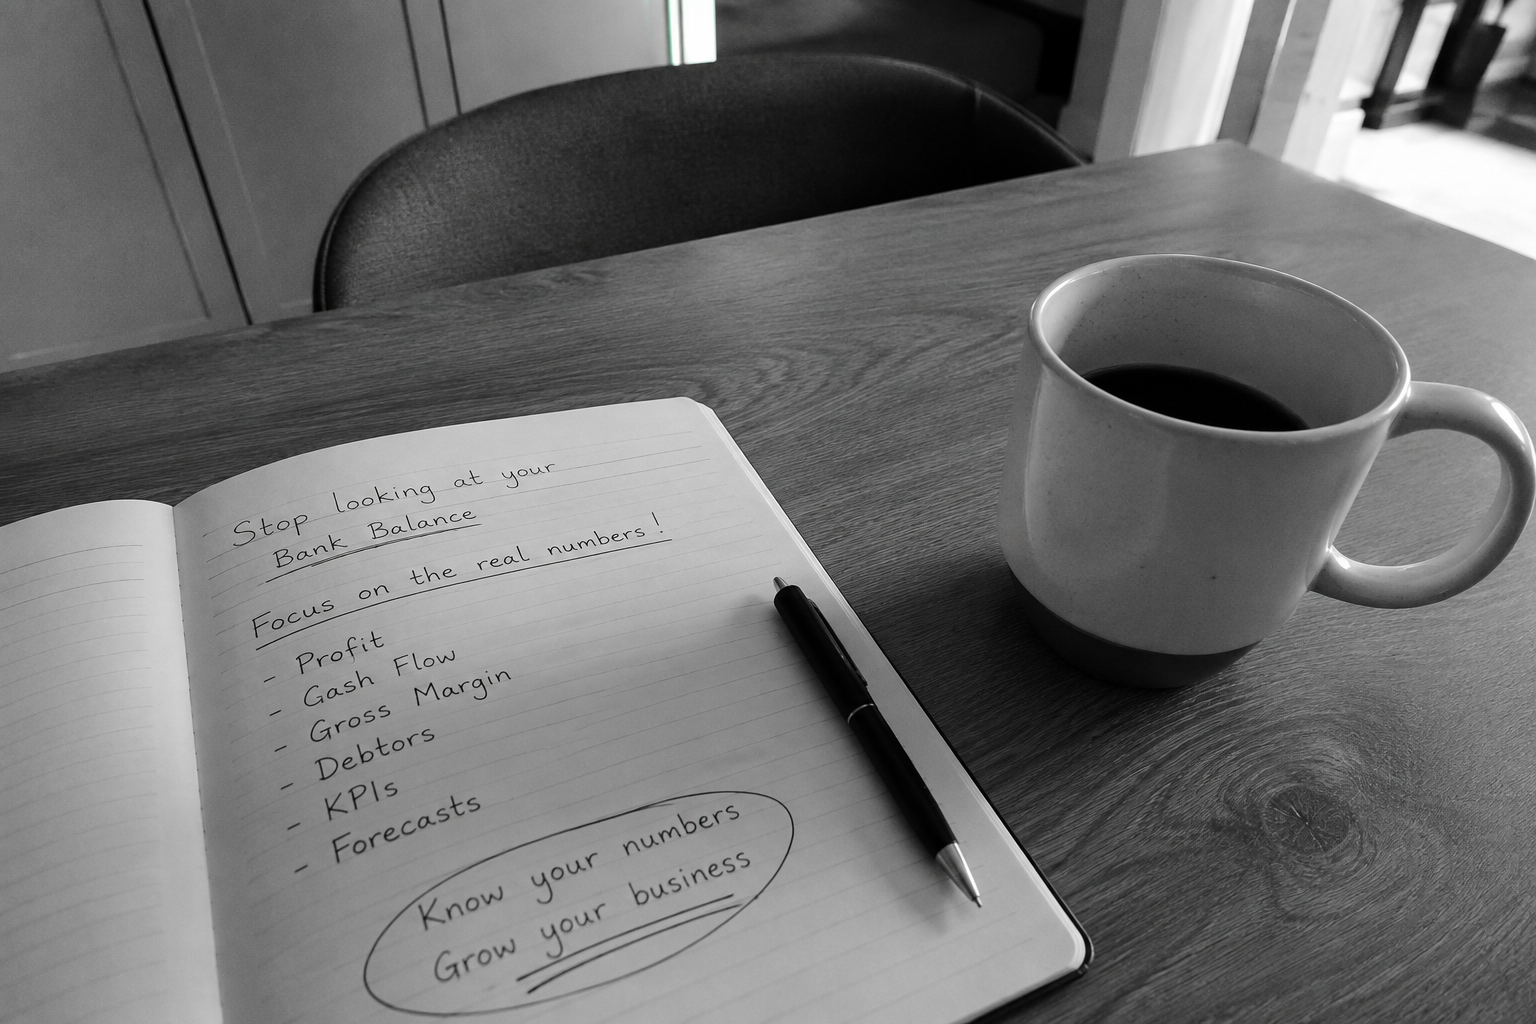 Stop looking at your
Bank Balance
Focus on the real numbers!
- Profit
- Cash Flow
- Gross Margin
- Debtors
- KPIs
- Forecasts
Know your numbers
Grow your business